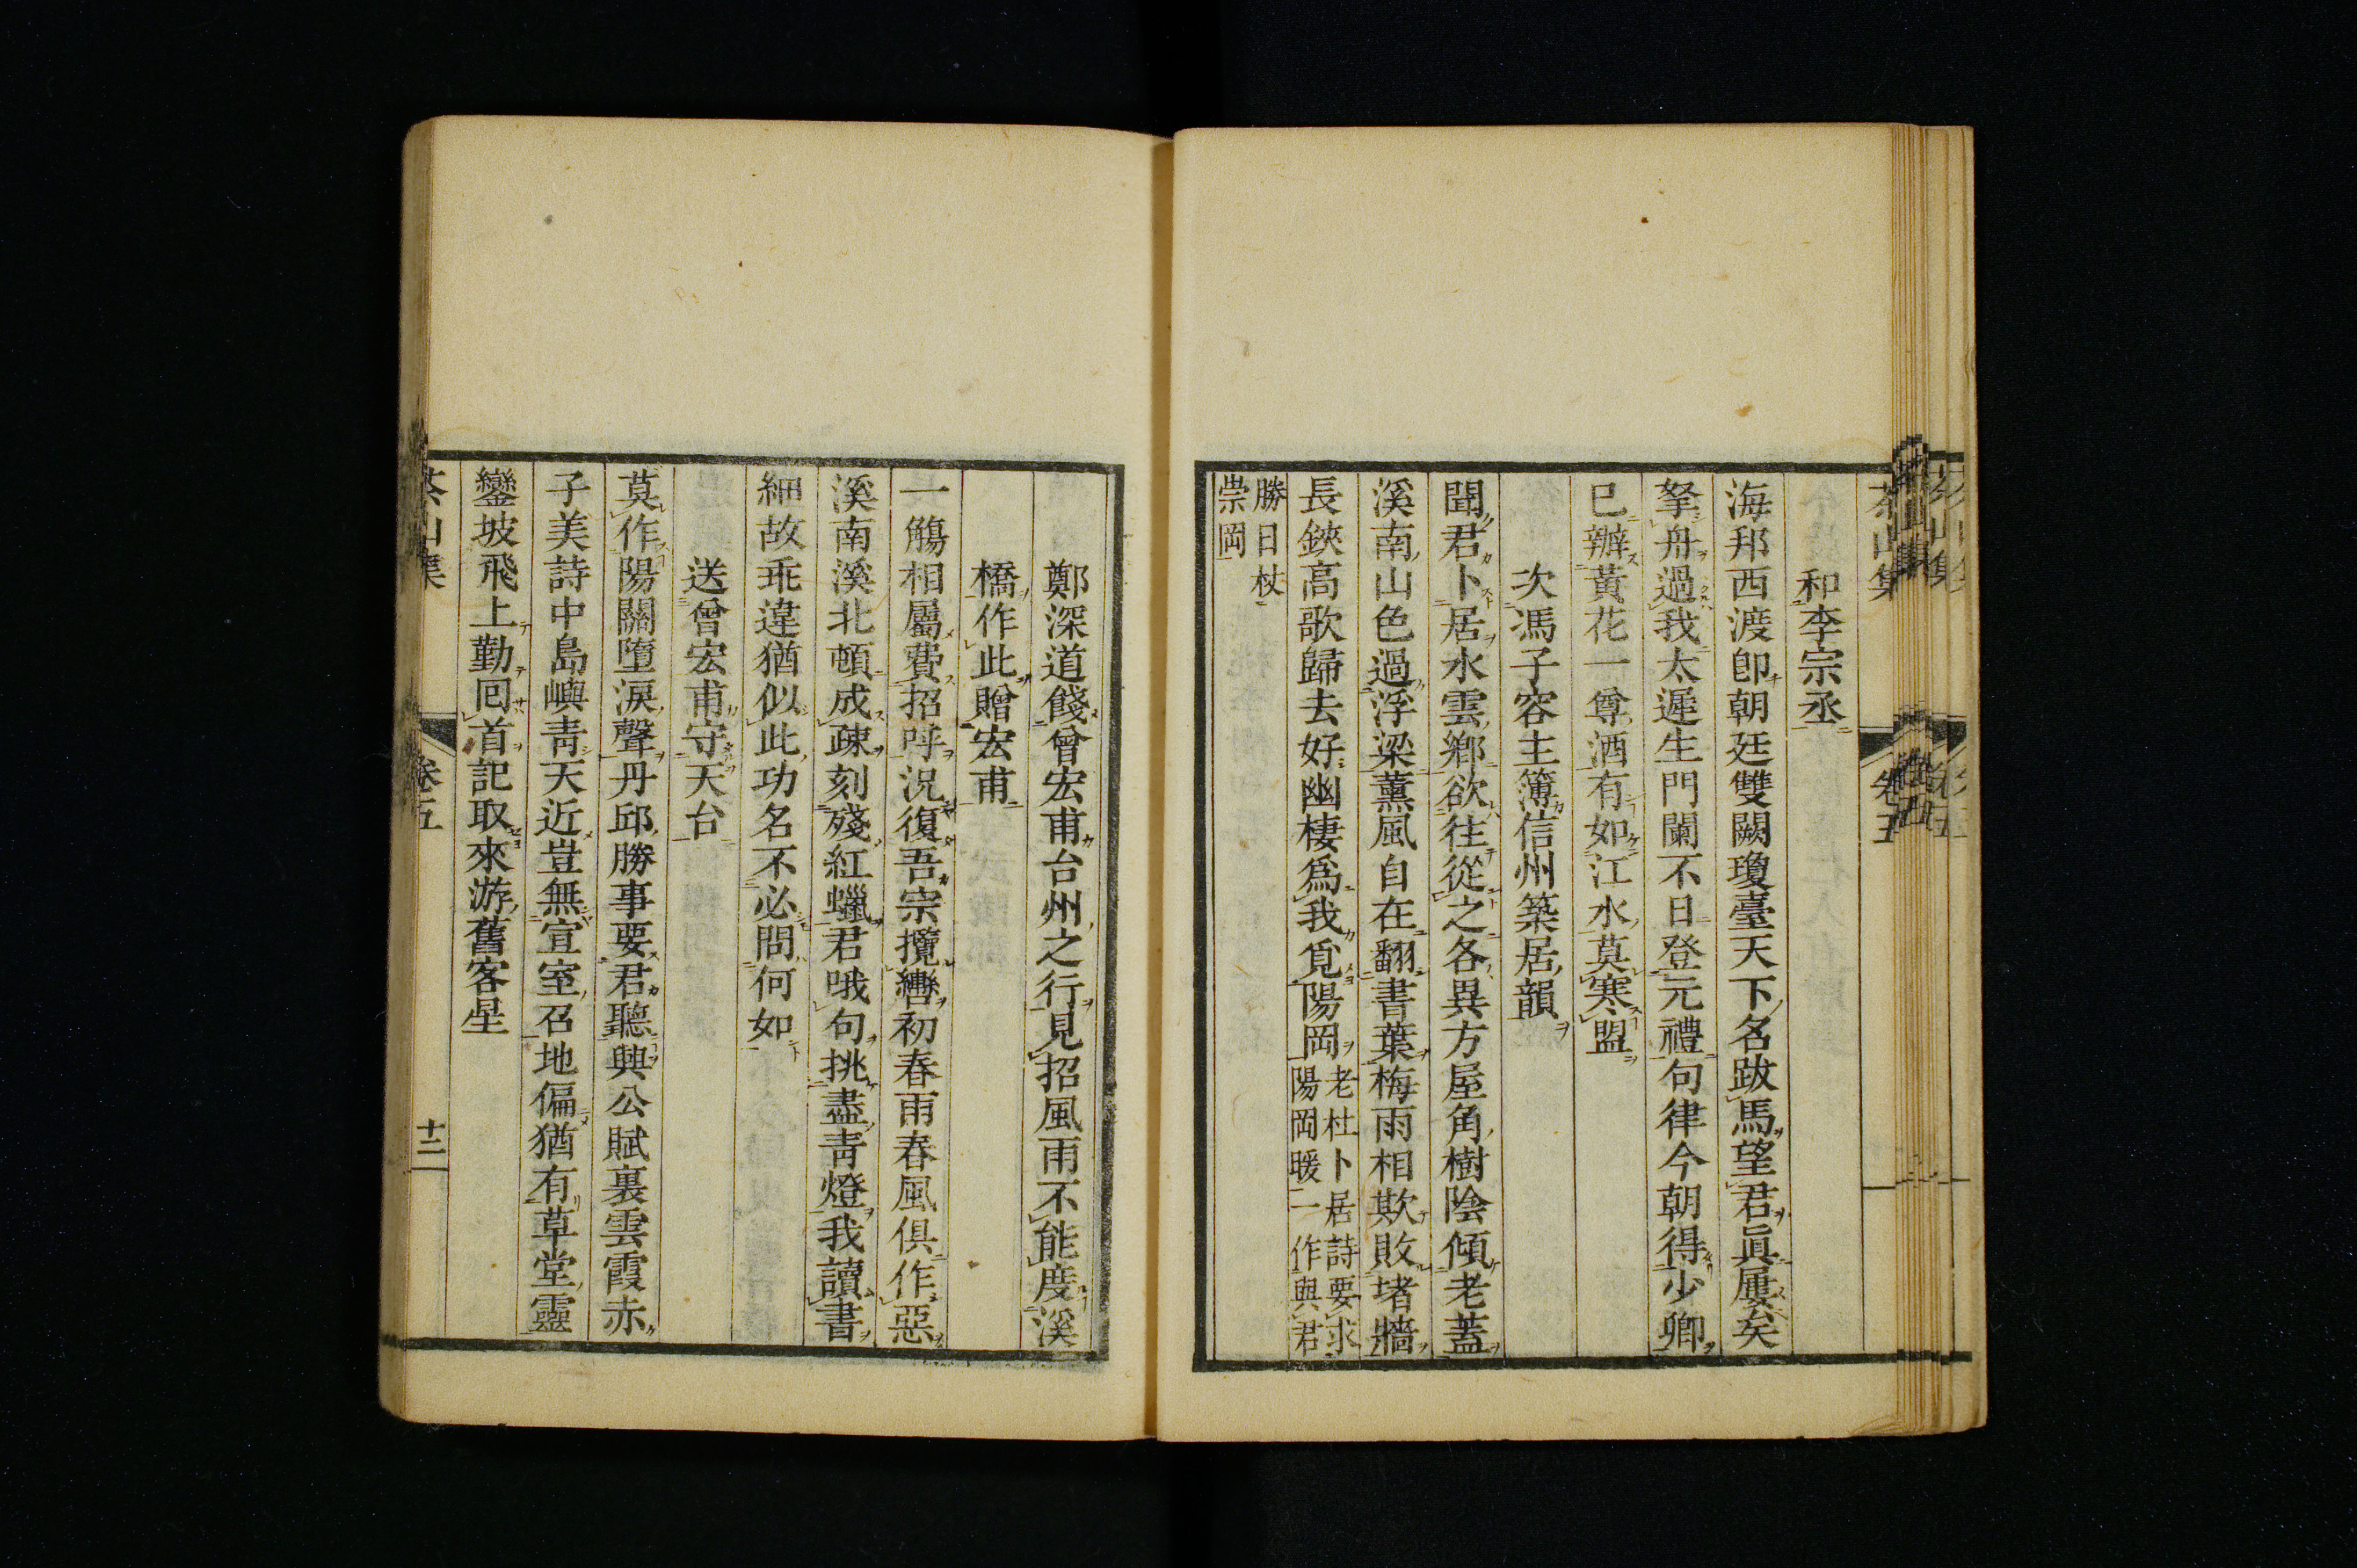 茶山集 卷五
和李宗丞
海邦西渡卽朝廷雙闕瓊臺天下名跋馬望君眞屢矣
拏舟過我太遲生門闌不日登元禮句律今朝得少卿
已辦黃花一尊酒有如江水莫寒盟
次馮子容主簿信州築居韻
聞君卜居水雲鄕欲往從之各異方屋角樹陰傾老蓋
溪南山色過浮梁薰風自在翻書葉梅雨相欺敗堵牆
長鋏高歌歸去好幽棲爲我覓陽岡老杜卜居詩要求
陽岡暖一作與君
勝日杖
崇岡
鄭深道餞曾宏甫台州之行見招風雨不能度溪
橋作此贈宏甫
一觴相屬費招呼況復吾宗攬轡初春雨春風俱作惡
溪南溪北頓成疎刻殘紅蠟君哦句挑盡靑燈我讀書
細故乖違猶似此功名不必問何如
送曾宏甫守天台
莫作陽關墮淚聲丹邱勝事要君聽興公賦裏雲霞赤
子美詩中島嶼靑天近豈無宣室召地偏猶有草堂靈
鑾坡飛上勤回首記取來游舊客星
茶山集 卷五 十二